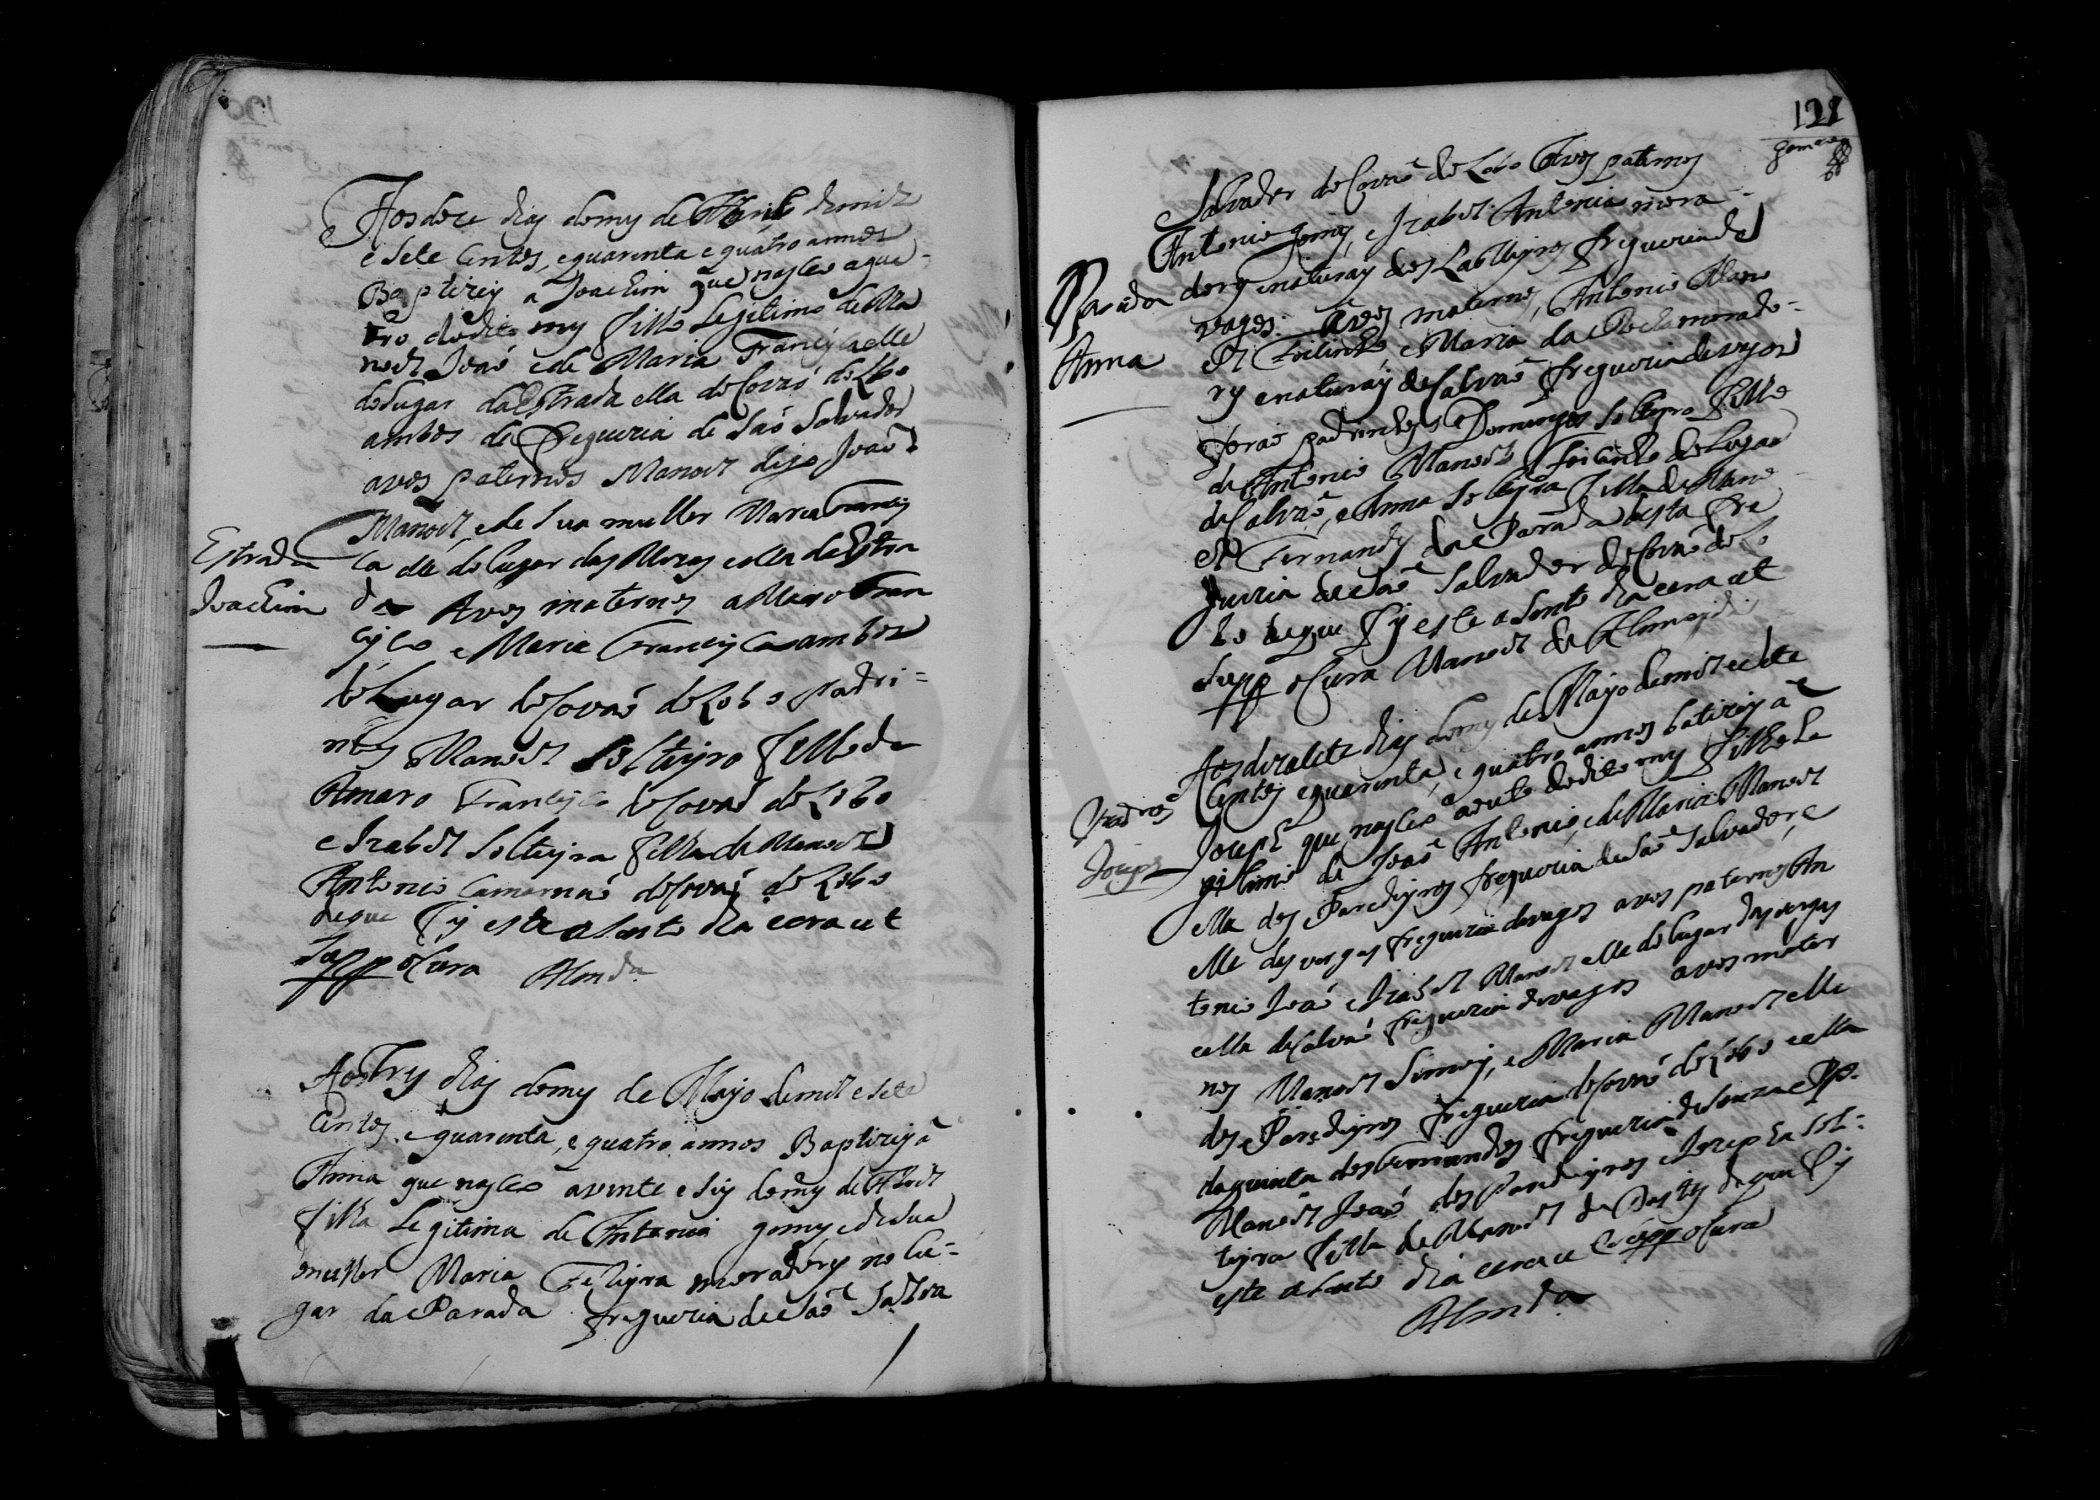 Aos doze dias do mes de Abril de mil
e sete centos, e quarenta e quatro annos
Baptizei a Joachim que nasceo a qua-
tro do dito mes filho Legitimo de Ma
noel João e de Maria Francisca elle
do lugar da Estrada ella de Covão do Lobo
ambos da freguezia de São Salvador
avos paternos Manoel digo João
Manoel, e de sua mulher Maria Francis
Estrada
Joachim
ca elle do lugar das ella da Estra
da Avos maternos Amaro Fran
cisco e Maria Francisca ambos
do Lugar de Covão do Lobo Padri=
nhos Manoel solteyro filho de
Amaro Francisco de Covão do Lobo
e Izabel solteyra filha de Manoel
Antonio de Covão do Lobo
de que fis este asento dia e era ut
supp o Cura Almda
Aos tres dias do mes de Mayo de mil e sete
centos, e quarenta, e quatro annos Baptizei a
Anna que nasceo a vinte e seis do mes de Abril
filha Legitima de Antonio gomes e de sua
mulher Maria moradores no lu=
gar da Parada freguezia de São Salva
121
Salvador de Covão do Lobo Avos paternos
Antonio gomes, e Izabel Antonia mora-
Parada
Anna
dores e naturais dos freguezia de
vagos. Avos maternos, Antonio Mano
el e Maria da morado-
res e naturais de Calvão freguezia de vagos
forão padrinhos Domingos solteyro filho
de Antonio Manoel do Lugar
de Calvão, e Anna solteyra filha de Mano
el Fernandes da Parada desta fre
guezia de São Salvador de Covão do Lo
bo de que fis este asento dia e era ut
supp o Cura Manoel de Almeida
Aos dezasete dias do mes de Mayo de mil e sete
centos e quarenta, e quatro annos batizei a
Joseph
Joseph que nasceo a oito do dito mes filho Le
gitimo de João Antonio, e de Maria Manoel
ella dos Pardeyros freguezia de São Salvador, e
elle das vergas freguezia de vagos avos paternos An
tonio João e Izabel Manoel elle do lugar das vergas
e ella de Calvão freguezia de vagos avos mater
nos Manoel Simois, e Maria Manoel elle
dos Pardeyros freguezia de Covão do Lobo e ella
da quinta dos freguezia de Souza e Pp.
Manoel João dos Pardeyros e Josepha sol=
teyra filha de Manoel de que fis
este asento dia e era ut supp o Cura
Almda